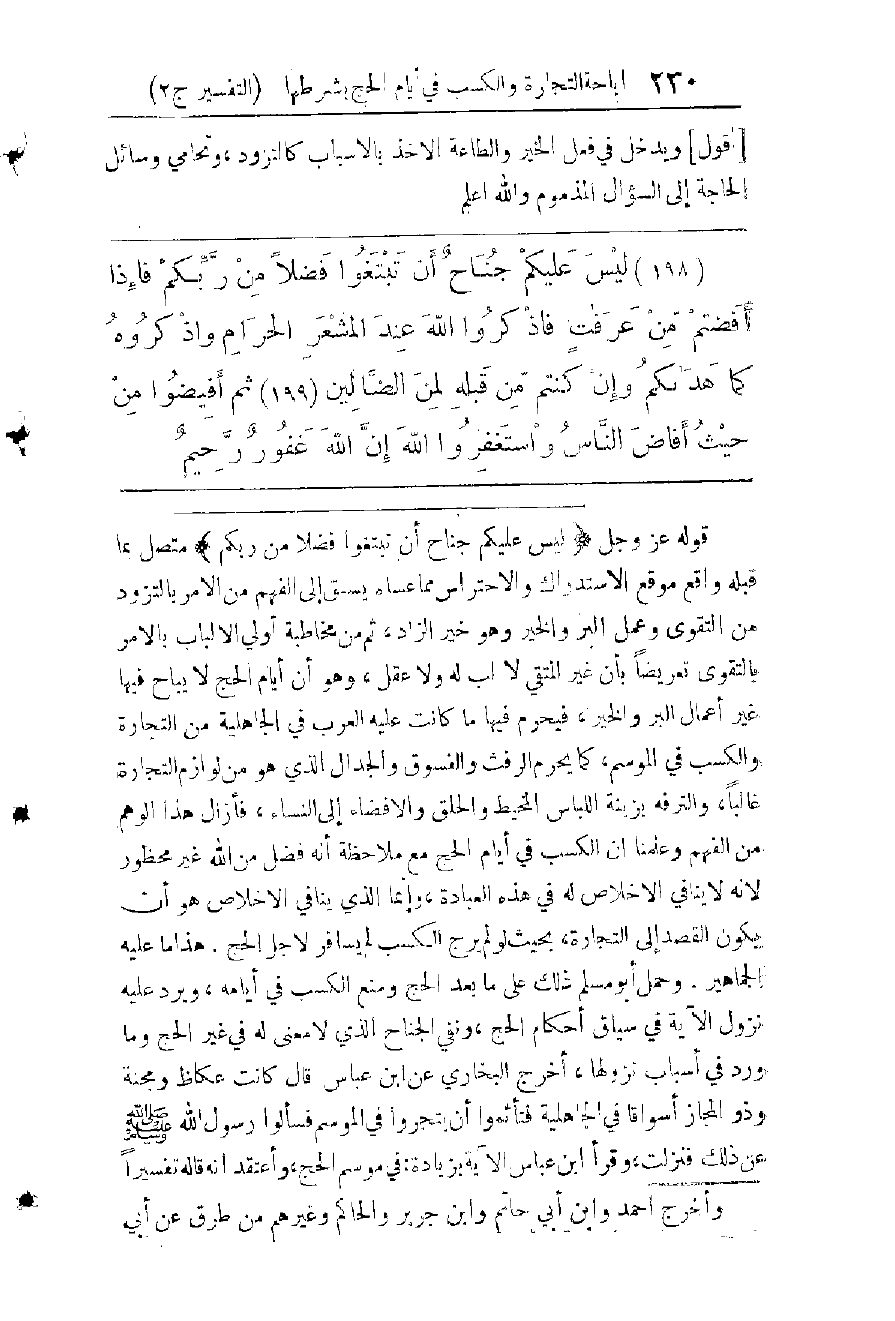 ٢٣٠ اباحة التجارة والكسب في أيام الحج بشرطها (التفسير ج٢)
[أقول] ويدخل في فعل الخير والطاعة الاخذ بالاسباب كالتزود ، وتحامي وسائل
الحاجة إلى السؤال المذموم والله اعلم
(١٩٨) لَيْسَ عَلَيكُمْ جُنَاحٌ أَن تَبْتَغُوا فَضلاً مِنْ رَّبِّكُمْ فَإِذا
أَفَضتمْ مِّنْ عَرَفَٰتٍ فَاذْكُرُوا اللهَ عِندَ المَشْعَرِ الحَرَامِ وَاذْكُرُوهُ
كَمَا هَدَاكُمْ وَإِنْ كُنتم مِّن قَبلِهِ لمِنَ الضَّالِّين (١٩٩) ثم أَفِيضُوا مِنْ
حَيْثُ أَفَاضَ النَّاسُ وَاستَغفِرُوا اللهَ إِنَّ اللهَ غَفُورٌ رَّحِيمٌ
قوله عز وجل ﴿ ليس عليكم جناح أن تبتغوا فضلا من ربكم ﴾ متصل بما
قبله واقع موقع الاستدراك والاحتراس مما عساه يسبق إلى الفهم من الامر بالتزود
من التقوى وعمل البر والخير وهو خير الزاد ، ثم من مخاطبة أولي الالباب بالامر
بالتقوى تعريضاً بأن غير المتقي لا لب له ولا عقل ، وهو أن أيام الحج لا يباح فيها
غير أعمال البر والخير ، فيحرم فيها ما كانت عليه العرب في الجاهلية من التجارة
والكسب في الموسم ، كما يحرم الرفث والفسوق والجدال الذي هو من لوازم التجارة
غالباً ، والترفه بزينة اللباس المخيط والحلق والافضاء إلى النساء ، فأزال هذا الوهم
من الفهم وعلمنا ان الكسب في أيام الحج مع ملاحظة أنه فضل من الله غير محظور
لانه لا ينافي الاخلاص له في هذه العبادة ، وإنما الذي ينافي الاخلاص هو أن
يكون القصد إلى التجارة ، بحيث لو لم يرج الكسب لم يسافر لاجل الحج . هذا ما عليه
الجماهير . وحمل أبو مسلم ذلك على ما بعد الحج ومنع الكسب في أيامه ، ويرد عليه
نزول الآية في سياق أحكام الحج ، ونفي الجناح الذي لا معنى له في غير الحج وما
ورد في أسباب نزولها ، أخرج البخاري عن ابن عباس قال كانت عكاظ ومجنة
وذو المجاز أسواقا في الجاهلية فتأثموا أن يتجروا في الموسم فسألوا رسول الله ﷺ
عن ذلك فنزلت ، وقرأ ابن عباس الآية بزيادة : في موسم الحج ، وأعتقد انه قاله تفسيراً
وأخرج احمد وابن أبي حاتم وابن جرير والحاكم وغيرهم من طرق عن أبي